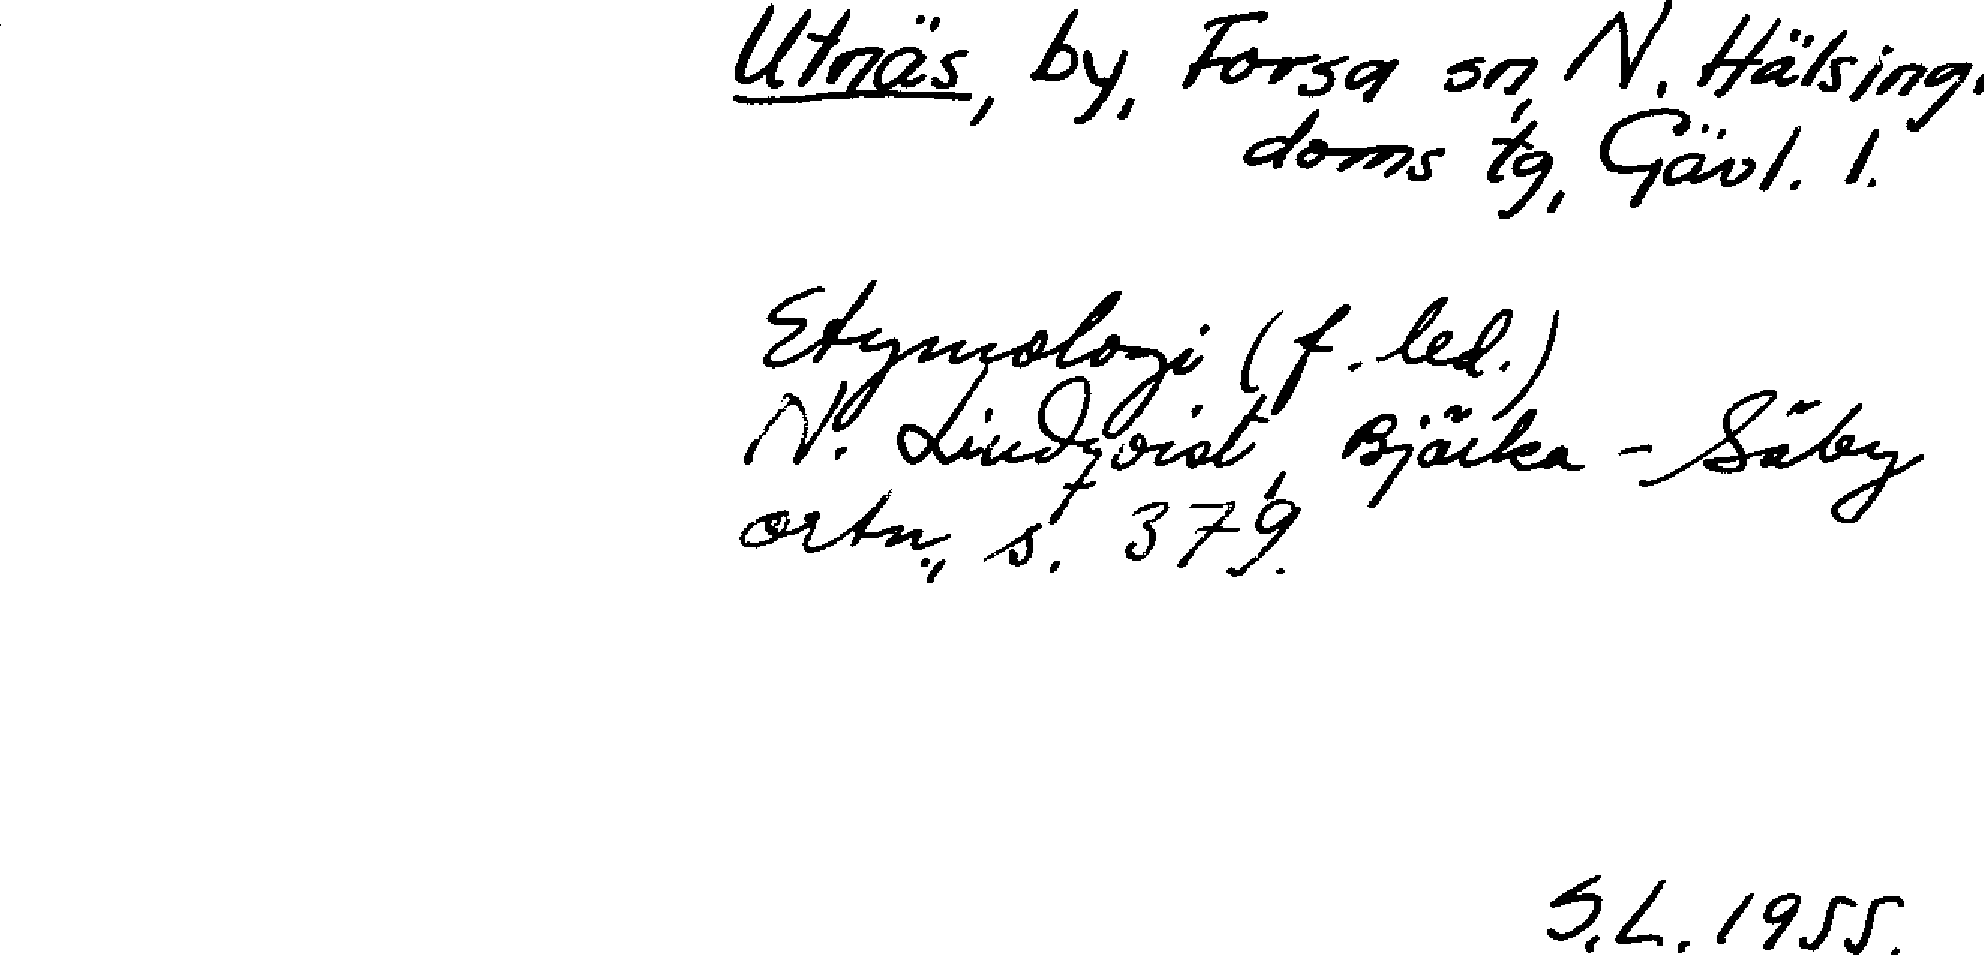 Utnäs, by, Forsa sn, N. Hälsing.
doms tg, Gävl. l.
Etymologi (f. led.)
N. Lindqvist, Bjärka-Säby
ortn., s. 379.
S.L. 1955.